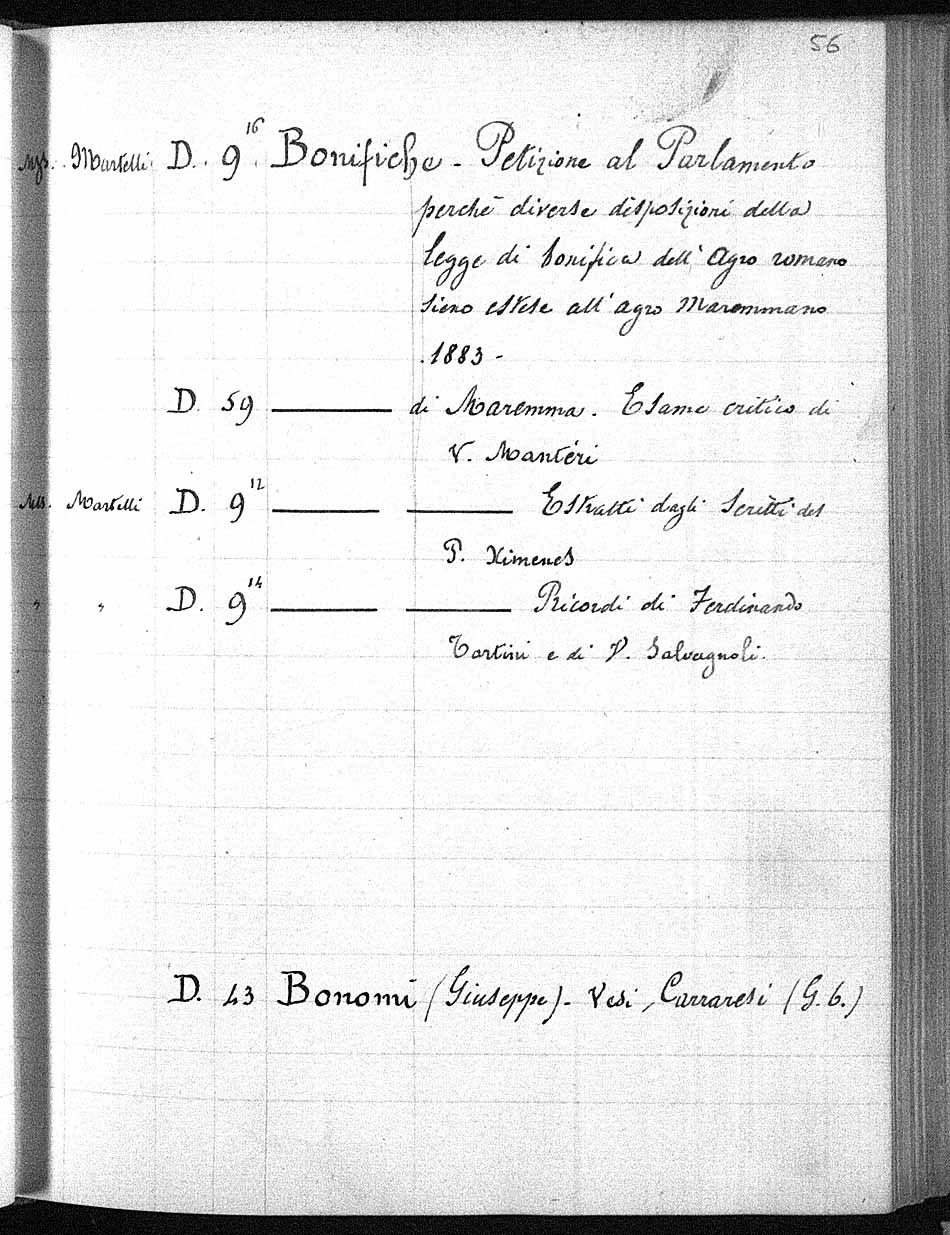 56
Mss. Martelli D. 9 16 Bonifiche - Petizione al Parlamento
perchè diverse disposizioni della
legge di bonifica dell' Agro romano
sieno estese all' agro Maremmano
.1883 -
D. 59 ——— di Maremma. Esame critico di
V. Mantéri
Mss. Martelli D. 9 12 ——— ——— Estratti dagli Scritti del
P. Ximenes
" " D. 9 14 ——— ——— Ricordi di Ferdinando
Tartini e di V. Salvagnoli.
D. 43 Bonomi (Giuseppe). Vedi, Carraresi (G. C.)